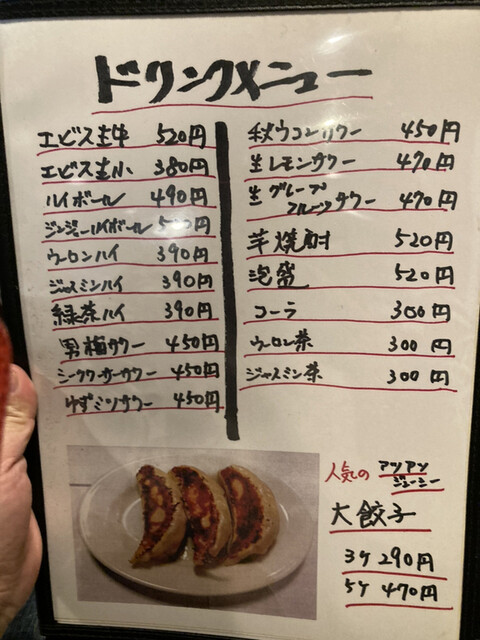 ドリンクメニュー
エビス生中 520円
エビス生小 380円
ハイボール 490円
ジンジャーハイボール 520円
ウーロンハイ 390円
ジャスミンハイ 390円
緑茶ハイ 390円
男梅サワー 450円
シークワーサーサワー 450円
ゆずミツサワー 450円
秋ウコンサワー 450円
生レモンサワー 470円
生グレープ
フルーツサワー 470円
芋焼酎 520円
泡盛 520円
コーラ 300円
ウーロン茶 300円
ジャスミン茶 300円
人気の アツアツ
ジューシー
大餃子
3ケ 290円
5ケ 470円